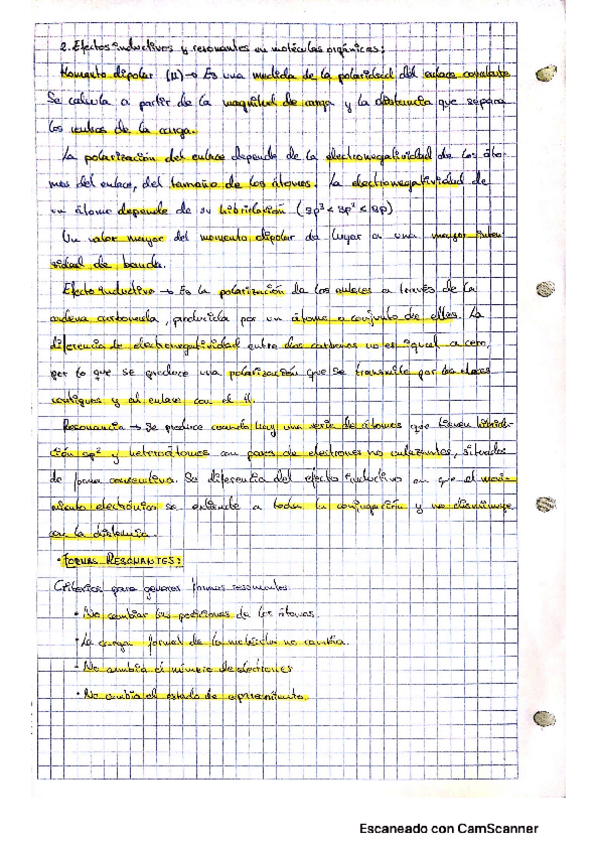 2. Efectos inductivos y resonantes en moléculas orgánicas:
Momento dipolar (μ) → Es una medida de la polaridad del enlace covalente
Se calcula a partir de la magnitud de carga y la distancia que separa
los centros de la carga.
La polarización del enlace depende de la electronegatividad de los áto-
mos del enlace, del tamaño de los átomos. La electronegatividad de
un átomo depende de su hibridación (sp³ < sp² < sp)
Un valor mayor del momento dipolar da lugar a una mayor inten-
sidad de banda.
Efecto inductivo → Es la polarización de los enlaces a través de la
cadena carbonada, producida por un átomo o conjunto de ellos. La
diferencia de electronegatividad entre dos carbonos no es igual a cero,
por lo que se produce una polarización que se transmite por los enlaces
contiguos y al enlace con el H.
Resonancia → Se produce cuando hay una serie de átomos que tienen hibrida-
ción sp² y heteroátomos con pares de electrones no enlazantes, situados
de forma consecutiva. Se diferencia del efecto inductivo en que el movi-
miento electrónico se extiende a toda la conjugación y no disminuye
con la distancia.
· FORMAS RESONANTES:
Criterios para generar formas resonantes
· No cambiar las posiciones de los átomos.
· La carga formal de la molécula no cambia.
· No cambia el número de electrones
· No cambia el estado de apareamiento.
Escaneado con CamScanner